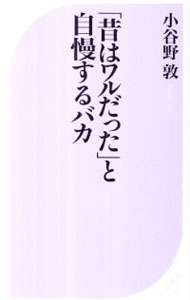 小谷野 敦
「昔はワルだった」と
自慢するバカ